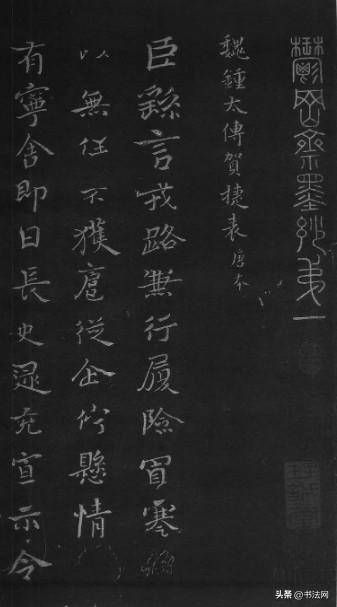 鬱岡齋墨妙弟一
魏鍾太傅賀捷表 唐本
臣繇言戎路兼行履險冒寒
以無任不獲扈從企佇懸情
有寧舍即日長史逯充宣示令
头条 @书法网